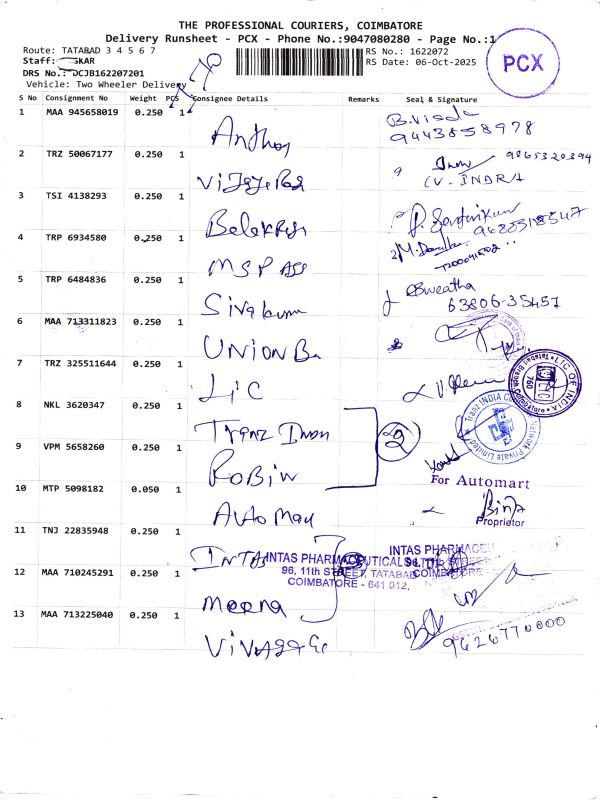 THE PROFESSIONAL COURIERS, COIMBATORE
Delivery Runsheet - PCX - Phone No.:9047080280 - Page No.:1
Route: TATABAD 3 4 5 6 7
RS No.: 1622072
Staff: SKAR
RS Date: 06-Oct-2025
DRS No.: DCJB162207201
Vehicle: Two Wheeler Delivery
PCX
S No Consignment No Weight PCS Consignee Details Remarks Seal & Signature
1 MAA 945658019 0.250 1 Anthoy
9443858978
2 TRZ 50067177 0.250 1 9865320394
(V. INDRA
3 TSI 4138293 0.250 1
4 TRP 6934580 0.250 1 MSP ASS
5 TRP 6484836 0.250 1 Sivakum Sweatha
63806-35457
6 MAA 713311823 0.250 1 UNION Ba
7 TRZ 325511644 0.250 1 LIC
LIC OF INDIA
760
8 NKL 3620347 0.250 1 Tranz Inon
2
Tranz INDIA Co
Network Private Limited
9 VPM 5658260 0.250 1 ROBIN
For Automart
10 MTP 5098182 0.050 1 Auto Mau
Binja
Proprietor
11 TNJ 22835948 0.250 1 INTAS
INTAS PHARMACEUTICALS LTD
96, 11th STREET, TATABAD
COIMBATORE - 641 012.
INTAS PHARMACEU
COIMBATORE -
12 MAA 710245291 0.250 1 meena
13 MAA 713225040 0.250 1
9626770000